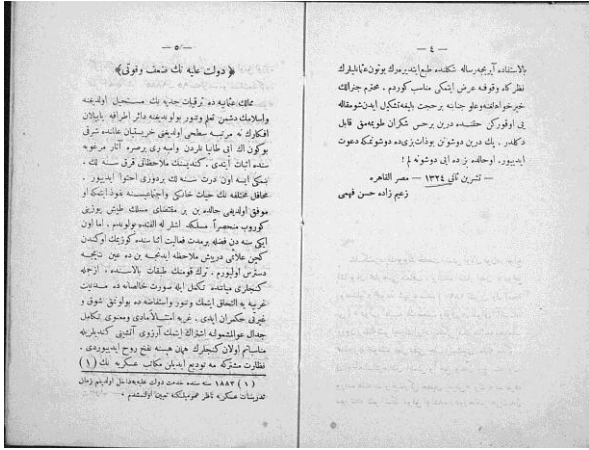 — ٤ —
بالاستفاده آيريجه رساله شكلنده طبع ايتديرمك بوتون عثمانليلرك
نظركاه وقوفنه عرض ايتمكى مناسب كوردم . محترم جنرالك
خيرخواهانه وعلو جنابنه برحجت بليغه تشكيل ايدن شو مقاله
يى اوقوركن حقنده درين برحس شكران طويمه مق قابل
دكلدر . پك درين دوشونن بوذات بزى ده دوشونمكه دعوت
ايدييور . اوحالده بز ده ايى دوشونه لم !
— تشرين ثانى ١٣٢٤ — مصر القاهره
زعيم زاده حسن فهمى
— ٥ —
﴿ دولت عليه نك ضعف وقوتى ﴾
ممالك عثمانيه ده ترقيات جديه نك مستحيل اولديغنه
واسلامك دشمن علم وتنور بولونديغنه دائر اطرافه ياييلان
افكارك نه مرتبه سطحى اولديغنى خرستيان عالمنده شرقى
بوكون اك ايى طانيانلردن وامبه رى برصره آثار مرغوبه
سنده اثبات ايتدى . كنديسنك ملاحظاتى قرق سنه لك ،
بنمكى ايسه اون درت سنه لك بردورى احتوا ايدييور .
محافل مختلفه نك حيات خانكى واجتماعيسنه نفوذ ايتمكه او
موفق اولديغى حالده بن بر مقتضاى مسلك طيش يوزينى
كوروب منحصراً مسلكداشلر له الفتده بولوندم . اما اون
ايكى سنه دن فضله برمدت فعاليت اثناسنده كوزيمك اوكندن
كچن علائمى درپيش ملاحظه ايدنجه بن ده عين نتيجه
دسترس اوليورم . ترك قومنك طبقات بالاسنده ، ازجمله
كنجلرى مياننده تكمل ايله صورت خالصانه ده مدنيت
غربيه يه التحاق ايتمك وتنور واستفاضه ده بولونمق شوق و
غيرتى حكمران ايدى . غربه اعتلاى مادى ومعنوى تكامل
جدال عوالمشمولنه اشتراك ايتمك آرزوى آتشينى كنديلريله
مناسباتم اولان كنجلرك همان هپسنه نفخ روح ايدييوردى .
نظارت مشتركه مه توديع ايديلن مكاتب عسكريه نك ( ١ )
( ١ ) ١٨٨٣ سنه سنده خدمت دولت عليه يه داخل اولديغم زمان
تدريسات عسكريه ناظر عموميلكنه تعيين اولنمشدم .